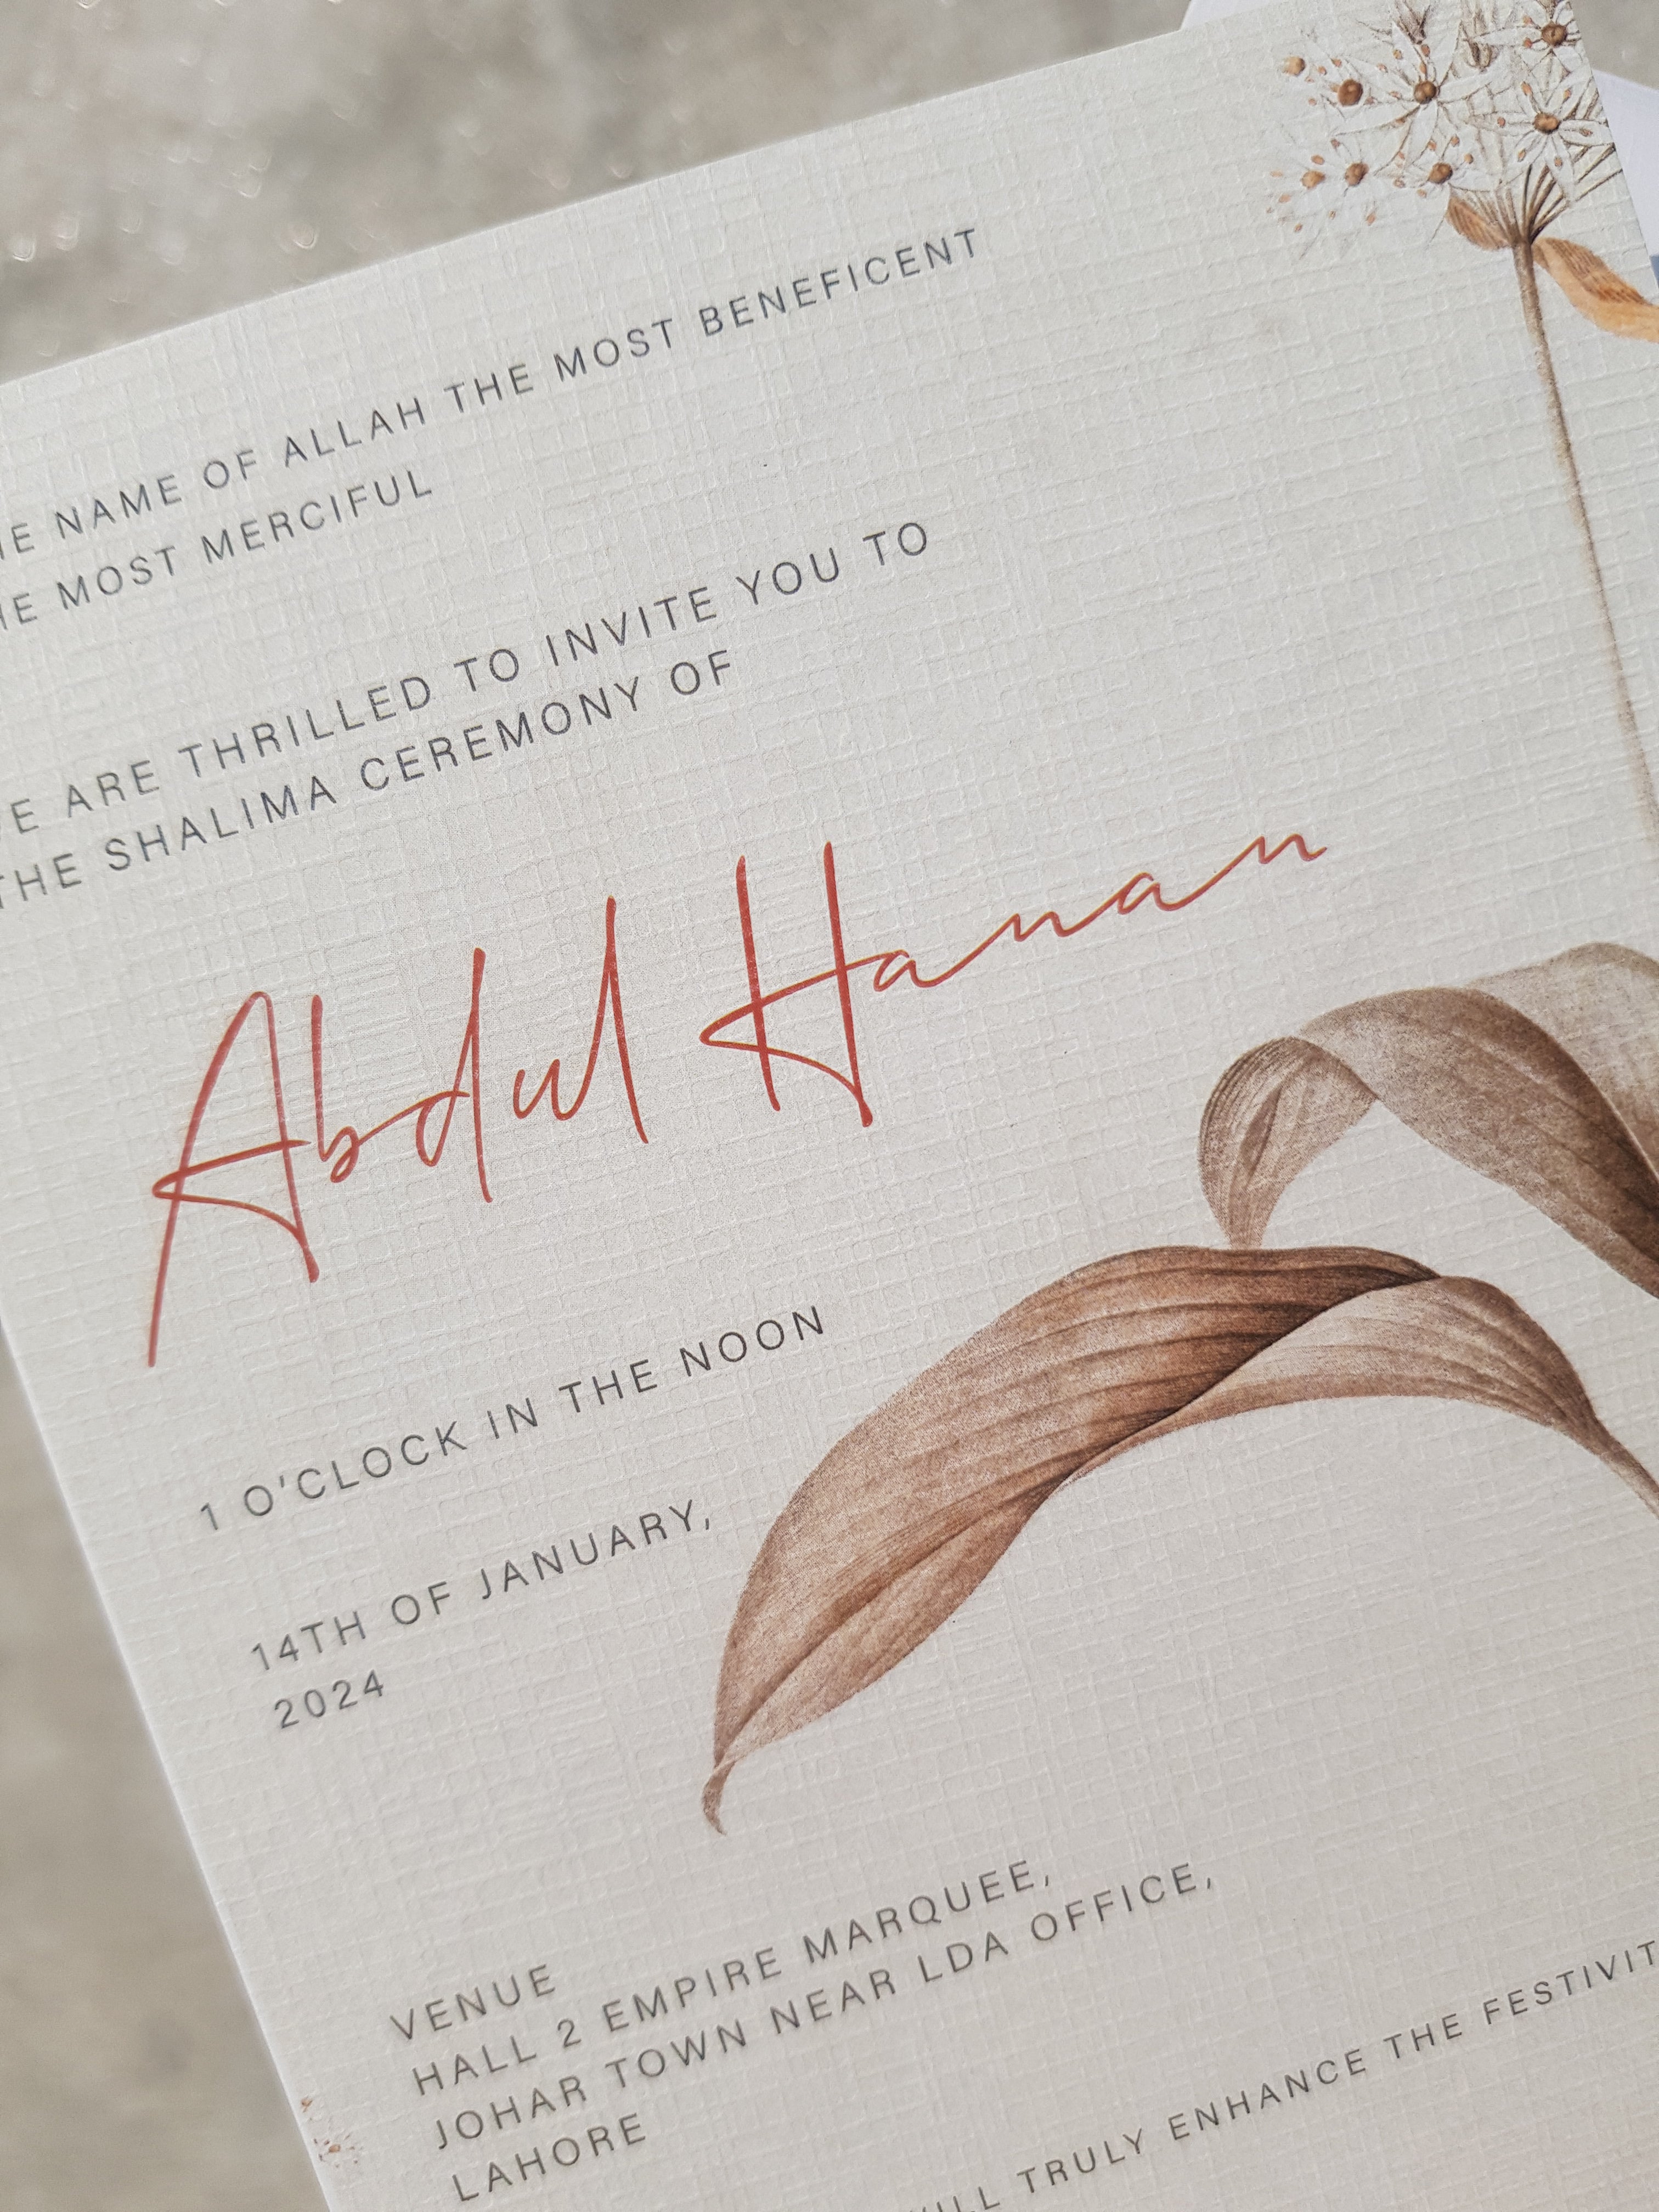 NAME OF ALLAH THE MOST BENEFICENT
MOST MERCIFUL
ARE THRILLED TO INVITE YOU TO
THE SHALIMA CEREMONY OF
Abdul Hanan
1 O'CLOCK IN THE NOON
14TH OF JANUARY,
2024
VENUE
HALL 2 EMPIRE MARQUEE,
JOHAR TOWN NEAR LDA OFFICE,
LAHORE
TRULY ENHANCE THE